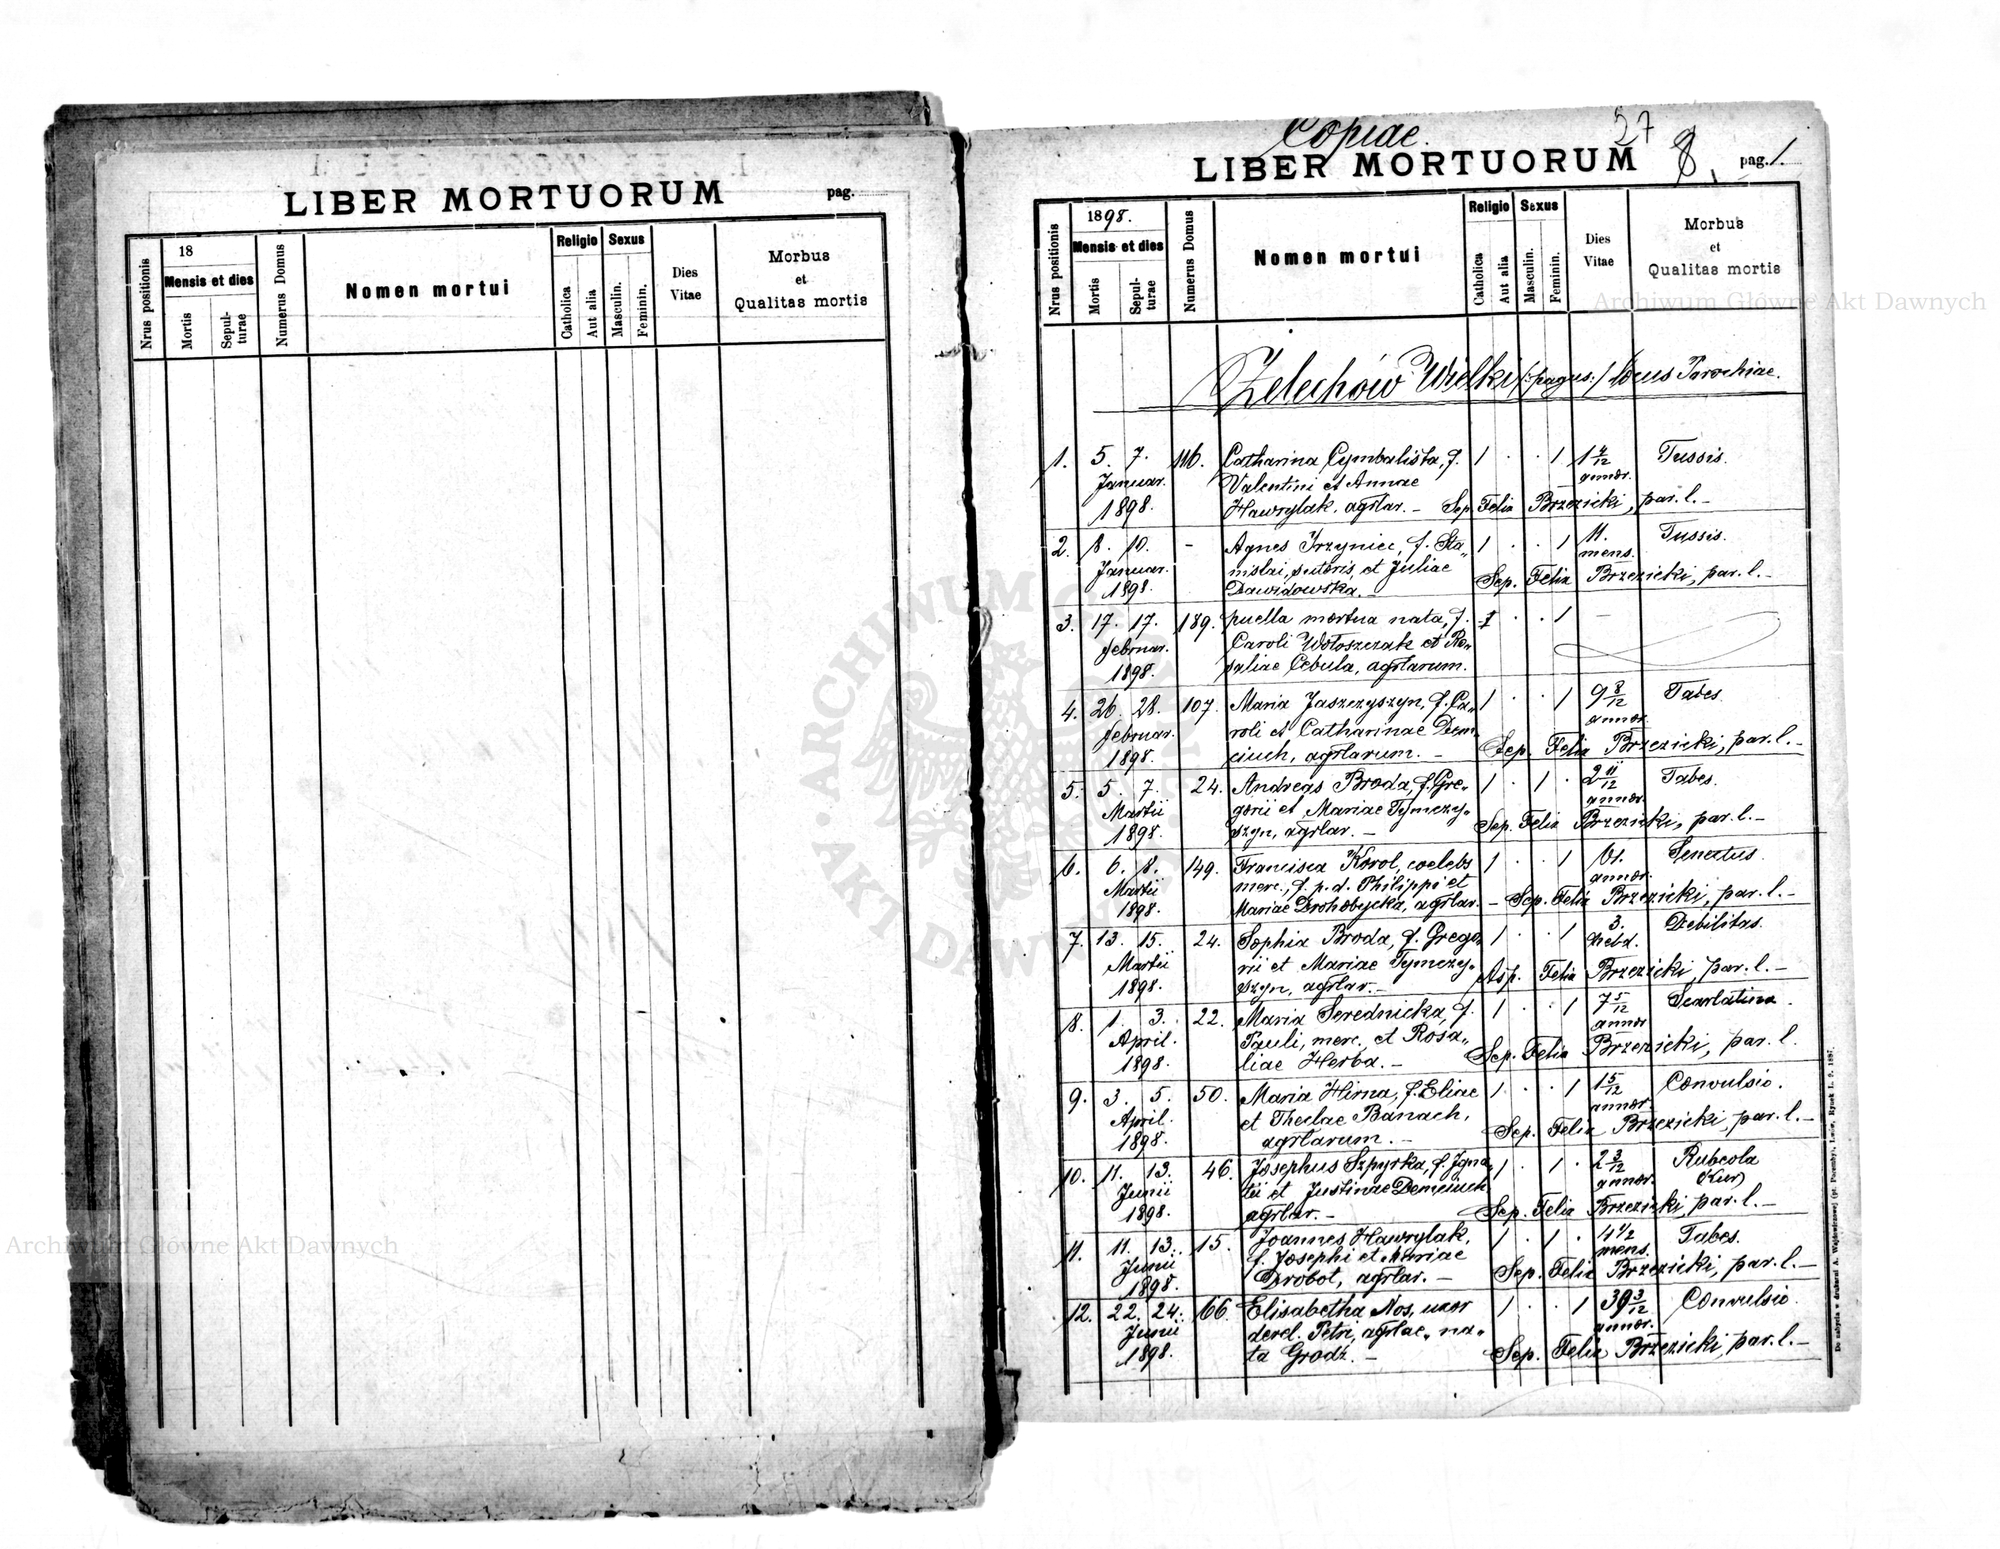 LIBER MORTUORUM
pag.
Nrus positionis
18
Mensis et dies
Mortis
Sepul-
turae
Numerus Domus
Nomen mortui
Religio
Catholica
Aut alia
Sexus
Masculin.
Feminin.
Dies
Vitae
Morbus
et
Qualitas mortis
Copiae.
27
LIBER MORTUORUM
8.
pag. 1.
Nrus positionis
1898.
Mensis et dies
Mortis
Sepul-
turae
Numerus Domus
Nomen mortui
Religio
Catholica
Aut alia
Sexus
Masculin.
Feminin.
Dies
Vitae
Morbus
et
Qualitas mortis
Archiwum Główne Akt Dawnych
Żelechów Wielki /:pagus:/ locus Parochiae.
1. 5. 7. 116. Catharina Cymbalista, f. 1 . . 1 1 4/12 Tussis.
Januar. Valentini et Annae annor.
1898. Hawrylak, agrlar. – Sep. Felix Brzezicki, par. l. –
2. 8. 10. – Agnes Trzyniec, f. Sta„ 1 . . 1 11. Tussis.
Januar. nislai, sutoris, et Juliae mens.
1898. Dawidowska. – Sep. Felix Brzezicki, par. l. –
3. 17. 17. 189. puella mortua nata, f. 1 . . 1 –
Februar. Caroli Wołoszczak et Ro„
1898. saliae Cebula, agrlarum.
4. 26. 28. 107. Maria Jaszczyszyn, f. Ca„ 1 . . 1 9 8/12 Tabes.
Februar. roli et Catharinae Dem„ annor.
1898. ciuch, agrlarum. – Sep. Felix Brzezicki, par. l. –
5. 5. 7. 24. Andreas Broda, f. Gre„ 1 . 1 . 2 11/12 Tabes.
Martii gorii et Mariae Tymczy„ annor.
1898. szyn, agrlar. – Sep. Felix Brzezicki, par. l. –
6. 6. 8. 149. Francisca Korol, coelebs 1 . . 1 61. Senectus.
Martii merc., f. p. d. Philippi et annor.
1898. Mariae Drohobycka, agrlar. – Sep. Felix Brzezicki, par. l. –
7. 13. 15. 24. Sophia Broda, f. Grego„ 1 . . 1 3. Debilitas.
Martii rii et Mariae Tymczy„ hebd.
1898. szyn, agrlar. – Asp. Felix Brzezicki, par. l. –
8. 1. 3. 22. Maria Serednicka, f. 1 . . 1 7 5/12 Scarlatina.
April. Pauli, merc. et Rosa„ annor
1898. liae Herba. – Sep. Felix Brzezicki, par. l.
9. 3. 5. 50. Maria Hirna, f. Eliae 1 . . 1 1 5/12 Convulsio.
April. et Theclae Banach, annor.
1898. agrlarum. – Sep. Felix Brzezicki, par. l. –
10. 11. 13. 46. Josephus Szpyrka, f. Igna„ 1 . 1 . 2 3/12 Rubeola
Junii tii et Justinae Demciuch annor. (Kur)
1898. agrlar. – Sep. Felix Brzezicki, par. l. –
11. 11. 13. 15. Joannes Hawrylak, 1 . 1 . 4 1/2 Tabes.
Junii f. Josephi et Mariae mens.
1898. Drobot, agrlar. – Sep. Felix Brzezicki, par. l. –
12. 22. 24. 66. Elisabetha Nos, uxor 1 . . 1 39 3/12 Convulsio.
Junii derel. Petri, agrlae„ na„ annor.
1898. ta Grodź. – Sep. Felix Brzezicki, par. l. –
ARCHIWUM GŁÓWNE AKT DAWNYCH
Archiwum Główne Akt Dawnych